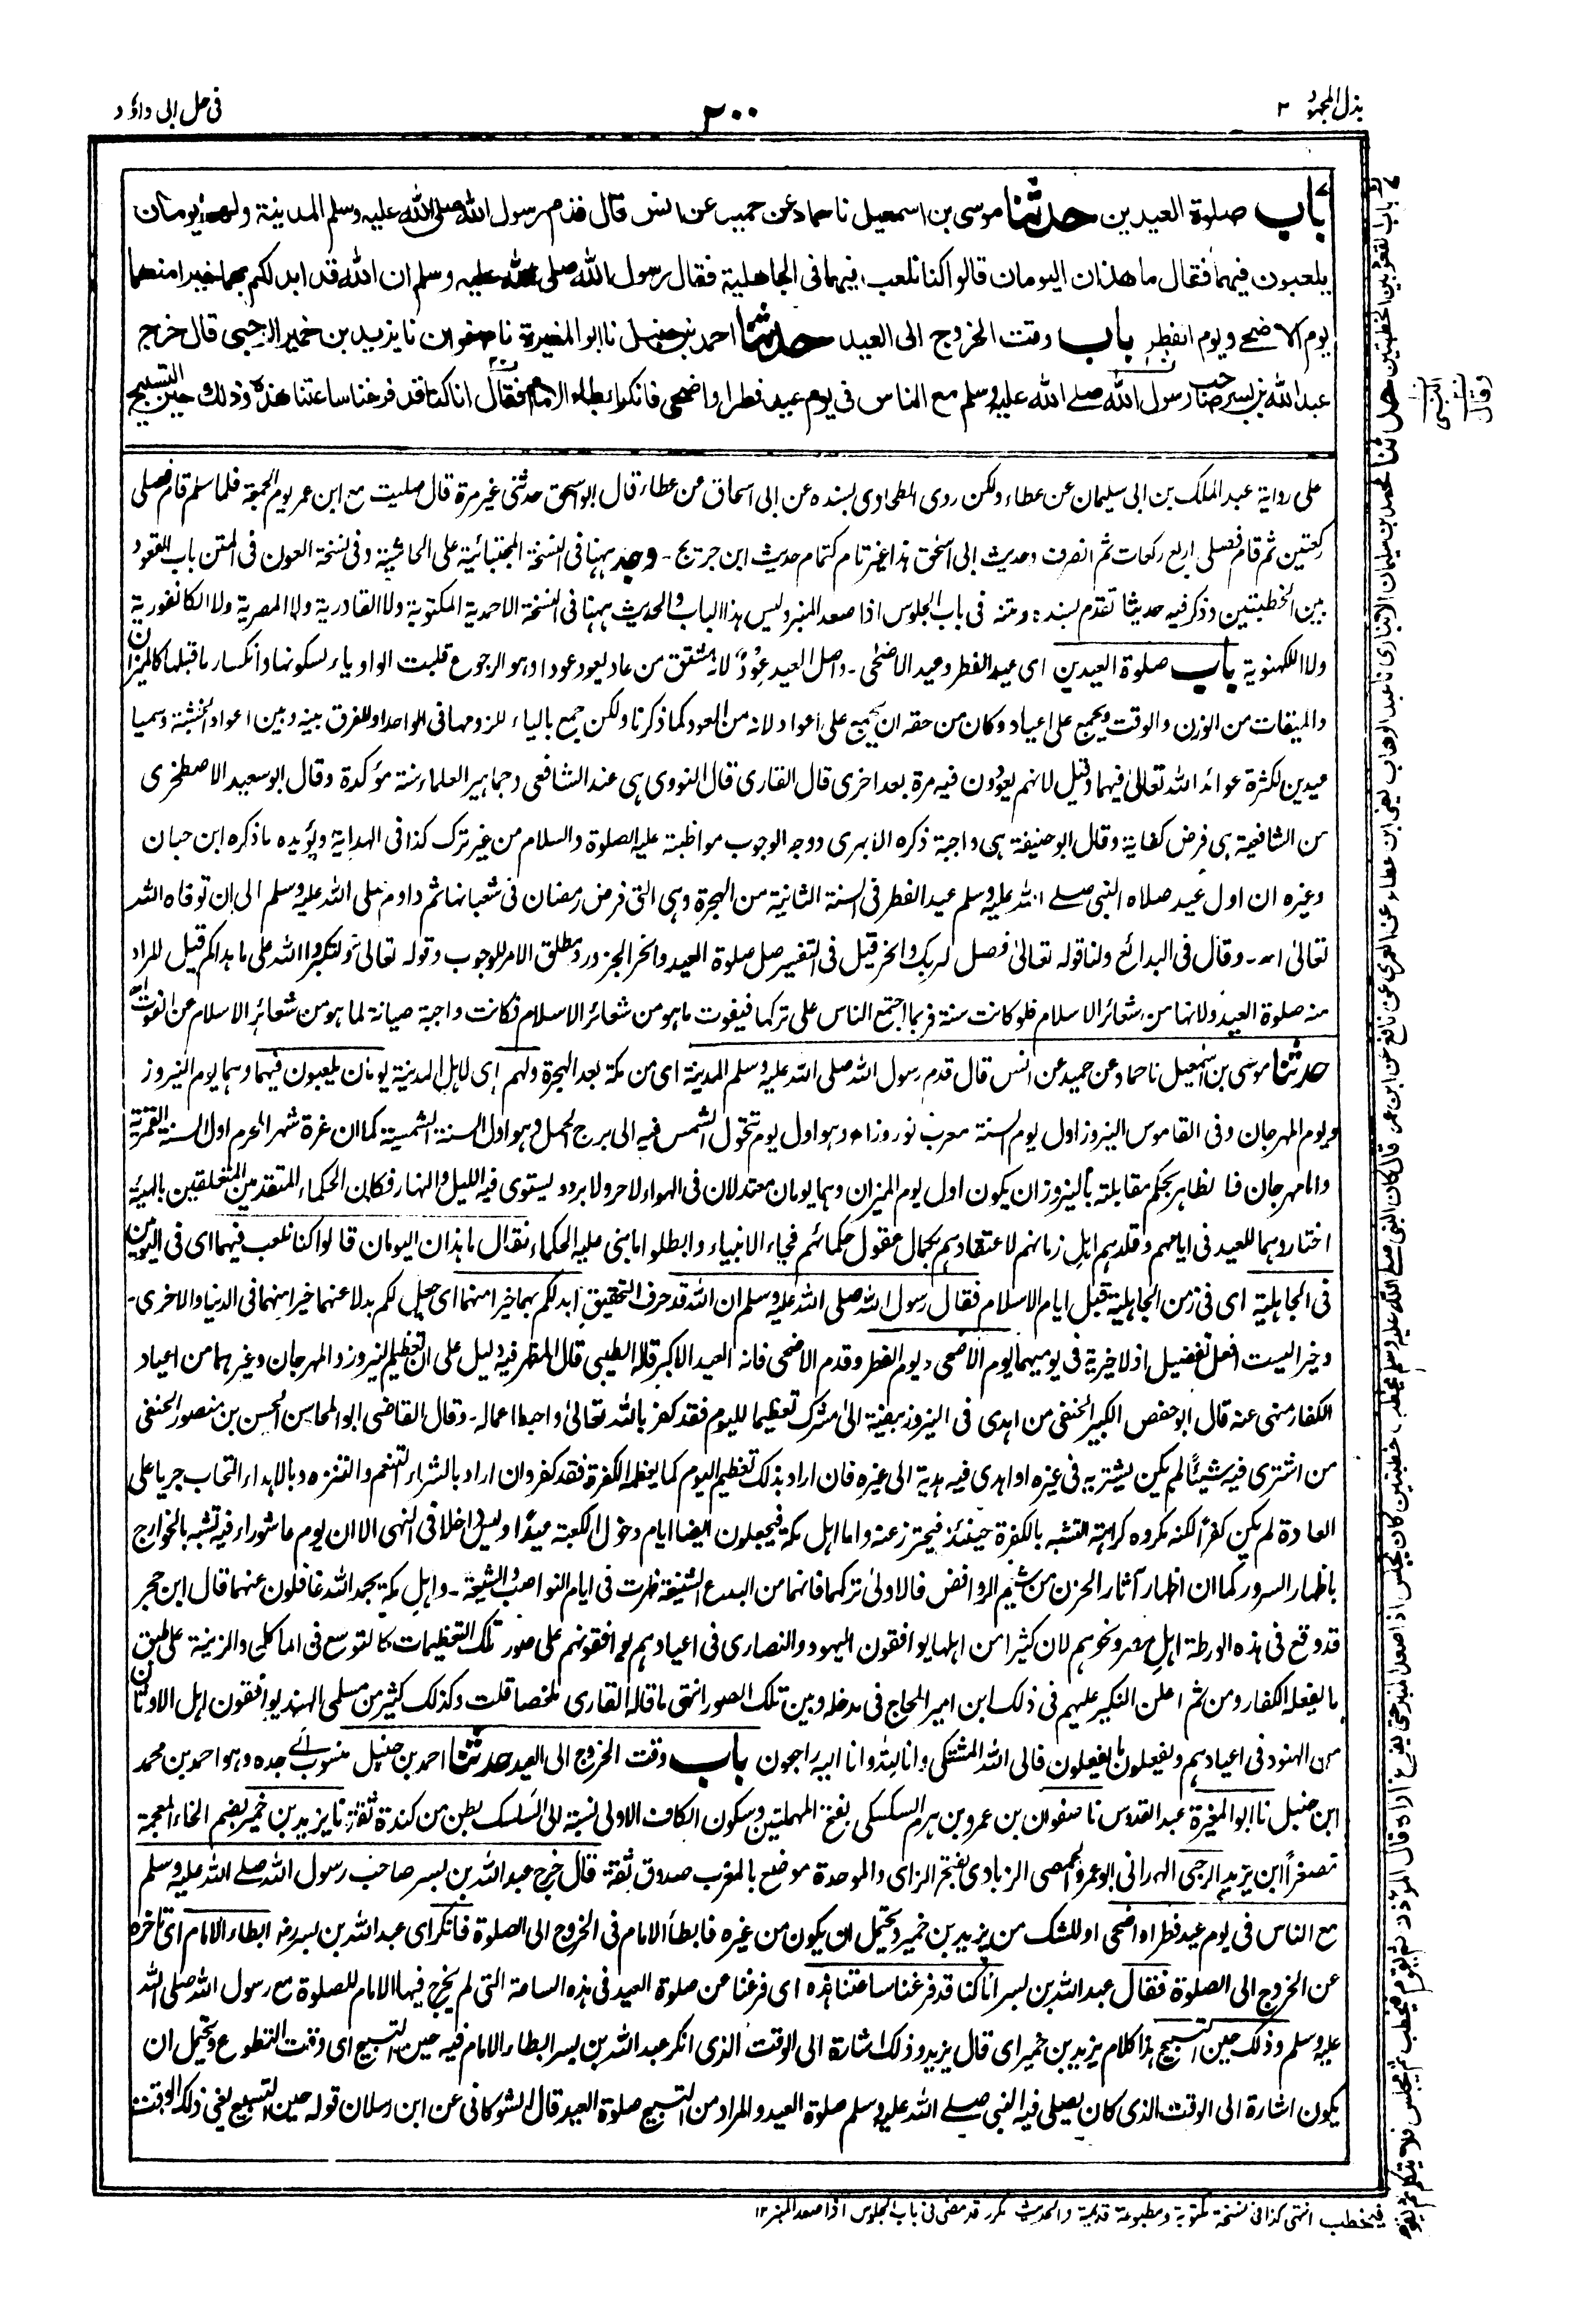 بذل المجهود ٢
٢٠٠
في حل ابى داؤد
باب صلوة العيدين حدثنا موسى بن اسمعيل نا حماد عن حميد عن انس قال قدم رسول الله صلى الله عليه وسلم المدينة ولهم يومان
يلعبون فيهما فقال ما هذان اليومان قالوا كنا نلعب فيهما في الجاهلية فقال رسول الله صلى الله عليه وسلم ان الله قد ابدلكم بهما خيرا منهما
يوم الاضحى ويوم الفطر باب وقت الخروج الى العيد حدثنا احمد بن حنبل نا ابو المغيرة نا صفوان نا يزيد بن خمير الرحبى قال خرج
عبد الله بن بسر صاحب رسول الله صلى الله عليه وسلم مع الناس في يوم عيد فطر او اضحى فانكر ابطاء الامام فقال انا كنا قد فرغنا ساعتنا هذه وذلك حين التسبيح
على رواية عبد الملك بن ابى سليمان عن عطاء ولكن روى الطحاوى بسنده عن ابى اسحاق عن عطاء قال ابو اسحق حدثنى غير مرة قال صليت مع ابن عمر يوم الجمعة فلما سلم قام فصلى
ركعتين ثم قام فصلى اربع ركعات ثم انصرف وحديث ابى اسحق هذا غير تام كتمام حديث ابن جريج - وجد ههنا في النسخة المجتبائية على الحاشية وفى نسخة العون في المتن باب القعود
بين الخطبتين وذكر فيه حديثا تقدم بسنده ومتنه في باب الجلوس اذا صعد المنبر وليس هذا الباب والحديث ههنا في النسخة الاحمدية المكتوبة ولا القادرية ولا المصرية ولا الكانفورية
ولا اللكهنوية باب صلوة العيدين اى عيد الفطر وعيد الاضحى - واصل العيد عود لانه مشتق من عاد يعود عودا وهو الرجوع قلبت الواو ياء لسكونها وانكسار ما قبلها كالميزان
والميقات من الوزن والوقت ويجمع على اعياد وكان من حقه ان يجمع على اعواد لانه من العود كما ذكرنا ولكن جمع بالياء للزومها في الواحد او للفرق بينه وبين اعواد الخشبة وسميا
عيدين لكثرة عوائد الله تعالى فيهما وقيل لانهم يعودون فيه مرة بعد اخرى قال القارى قال النووى هى عند الشافعى وجماهير العلماء سنة مؤكدة وقال ابو سعيد الاصطخرى
من الشافعية هى فرض كفاية وقال ابو حنيفة هى واجبة ذكره الابهرى ووجه الوجوب مواظبته عليه الصلوة والسلام من غير ترك كذا في الهداية ويؤيده ما ذكره ابن حبان
وغيره ان اول عيد صلاه النبى صلى الله عليه وسلم عيد الفطر في السنة الثانية من الهجرة وهى التى فرض رمضان في شعبانها ثم داوم صلى الله عليه وسلم الى ان توفاه الله
تعالى اه - وقال في البدائع ولنا قوله تعالى فصل لربك وانحر قيل في التفسير صل صلوة العيد وانحر الجزور ومطلق الامر للوجوب وقوله تعالى ولتكبروا الله على ما هداكم قيل المراد
منه صلوة العيد ولانها من شعائر الاسلام فلو كانت سنة فربما اجتمع الناس على تركها فيفوت ما هو من شعائر الاسلام فكانت واجبة صيانة لما هو من شعائر الاسلام عن الفوت اه
حدثنا موسى بن اسمعيل نا حماد عن حميد عن انس قال قدم رسول الله صلى الله عليه وسلم المدينة اى من مكة بعد الهجرة ولهم اى لاهل المدينة يومان يلعبون فيهما وهما يوم النيروز
ويوم المهرجان وفى القاموس النيروز اول يوم السنة معرب نوروز اه وهو اول يوم تتحول الشمس فيه الى برج الحمل وهو اول السنة الشمسية كما ان غرة شهر المحرم اول السنة القمرية
واما مهرجان فالظاهر بحكم مقابلته بالنيروز ان يكون اول يوم الميزان وهما يومان معتدلان في الهواء لا حر ولا برد ويستوى فيه الليل والنهار فكان الحكماء المتقدمين المتعلقين بالهيئة
اختاروهما للعيد في ايامهم وقلدهم اهل زمانهم لاعتقادهم بكمال عقول حكمائهم فجاء الانبياء وابطلوا ما بنى عليه الحكماء فقال ما هذان اليومان قالوا كنا نلعب فيهما اى في اليومين
في الجاهلية اى في زمن الجاهلية قبل ايام الاسلام فقال رسول الله صلى الله عليه وسلم ان الله قد حرف التحقيق ابدلكم بهما خيرا منهما اى جعل لكم بدلا عنهما خيرا منهما في الدنيا والاخرى -
وخيرا ليست افعل تفضيل اذ لا خيرية في يوميهما يوم الاضحى ويوم الفطر وقدم الاضحى فانه العيد الاكبر قاله الطيبى قال المظهر فيه دليل على ان تعظيم النيروز والمهرجان وغيرهما من اعياد
الكفار منهى عنه قال ابو حفص الكبير الحنفى من اهدى في النيروز بيضة الى مشرك تعظيما لليوم فقد كفر بالله تعالى واحبط اعماله - وقال القاضى ابو المحاسن الحسن بن منصور الحنفى
من اشترى فيه شيئا لم يكن يشتريه في غيره او اهدى فيه هدية الى غيره فان اراد بذلك تعظيم اليوم كما يعظمه الكفرة فقد كفر وان اراد بالشراء التنعم والتنزه وبالاهداء التحاب جريا على
العادة لم يكن كفرا لكنه مكروه كراهة التشبه بالكفرة حينئذ فيحترز عنه واما اهل مكة فيجعلون ايضا ايام دخول الكعبة عيدا وليس داخلا في النهى الا ان يوم عاشوراء فيه تشبه بالخوارج
باظهار السرور كما ان اظهار آثار الحزن من شيم الروافض فالاولى تركهما فانهما من البدع الشنيعة ظهرت في ايام النواصب والشيعة - واهل مكة بحمد الله غافلون عنهما قال ابن حجر
قد وقع في هذه الورطة اهل مصر ونحوهم لان كثيرا من اهلها يوافقون اليهود والنصارى في اعيادهم يوافقونهم على صور تلك التعظيمات كالتوسع في الماكل والزينة على طبق
ما يفعله الكفار ومن ثم اعلن النكير عليهم في ذلك ابن امير الحاج في مدخله وبين تلك الصور انتهى ما قاله القارى ملخصا قلت وكذلك كثير من مسلمى الهند يوافقون اهل الاوثان
من الهنود في اعيادهم ويفعلون ما يفعلون فالى الله المشتكى وانا لله وانا اليه راجعون باب وقت الخروج الى العيد حدثنا احمد بن حنبل منسوب الى جده وهو احمد بن محمد
ابن حنبل نا ابو المغيرة عبد القدوس نا صفوان بن عمرو بن هرم السكسكى بفتح المهملتين وسكون الكاف الاولى نسبة الى السكسك بطن من كندة ثقة نا يزيد بن خمير بضم الخاء المعجمة
تصغرا ابن يزيد الرحبى الهمدانى ابو عمر الحمصى الزبادى بفتح الزاى والموحدة موضع بالمغرب صدوق ثقة قال خرج عبد الله بن بسر صاحب رسول الله صلى الله عليه وسلم
مع الناس في يوم عيد فطر او اضحى او للشك من يزيد بن خمير ويحتمل ان يكون من غيره فابطأ الامام في الخروج الى الصلوة فانكر اى عبد الله بن بسر رض ابطاء الامام اى تاخره
عن الخروج الى الصلوة فقال عبد الله بن بسر انا كنا قد فرغنا ساعتنا هذه اى فرغنا عن صلوة العيد في هذه الساعة التى لم يخرج فيها الامام للصلوة مع رسول الله صلى الله
عليه وسلم وذلك حين التسبيح هذا كلام يزيد بن خمير اى قال يزيد وذلك اشارة الى الوقت الذى انكر عبد الله بن بسر ابطاء الامام فيه حين التسبيح اى وقت التطوع ويحتمل ان
يكون اشارة الى الوقت الذى كان يصلى فيه النبى صلى الله عليه وسلم صلوة العيد والمراد من التسبيح صلوة العيد قال الشوكانى عن ابن رسلان قوله حين التسبيح يعنى ذلك الوقت
باب القعود بين الخطبتين حدثنا محمد بن سليمان الانبارى نا عبد الوهاب يعنى ابن عطاء عن العمرى عن نافع عن ابن عمر قال كان النبى صلى الله عليه وسلم يخطب خطبتين كان يجلس اذا صعد المنبر حتى يفرغ اراه قال المؤذن ثم يقوم فيخطب ثم يجلس فلا يتكلم ثم يقوم
فيخطب انتهى كذا في نسخة مكتوبة ومطبوعة قديمة والحديث مكرر قد مضى في باب الجلوس اذا صعد المنبر ١٢
وقال